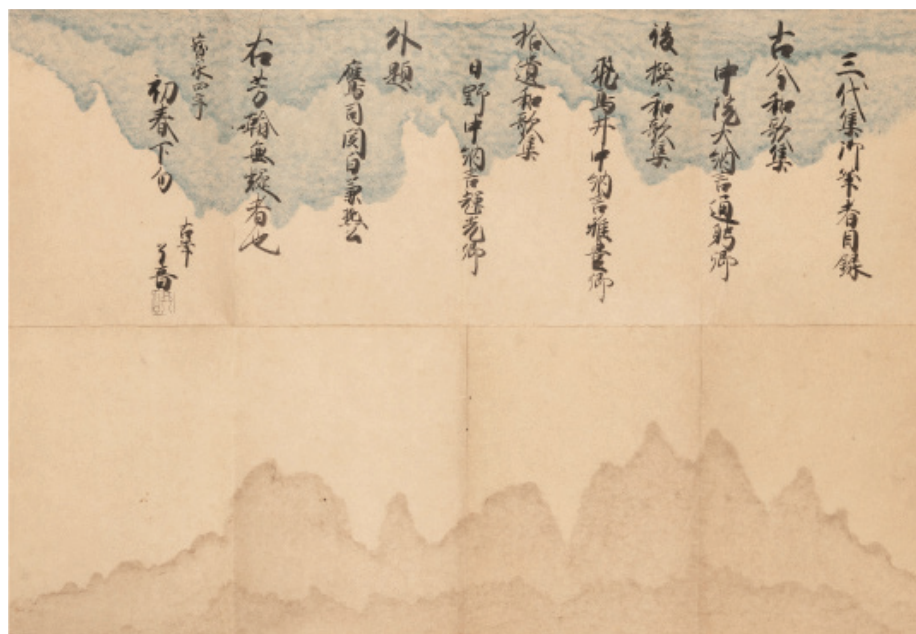 三代集御筆者目録
古今和歌集
中院大納言通躬卿
後撰和歌集
飛鳥井中納言雅豊卿
拾遺和歌集
日野中納言輝光卿
外題
鷹司関白兼熙公
右芳翰無疑者也
宝永四年
初春下旬
古筆
了音